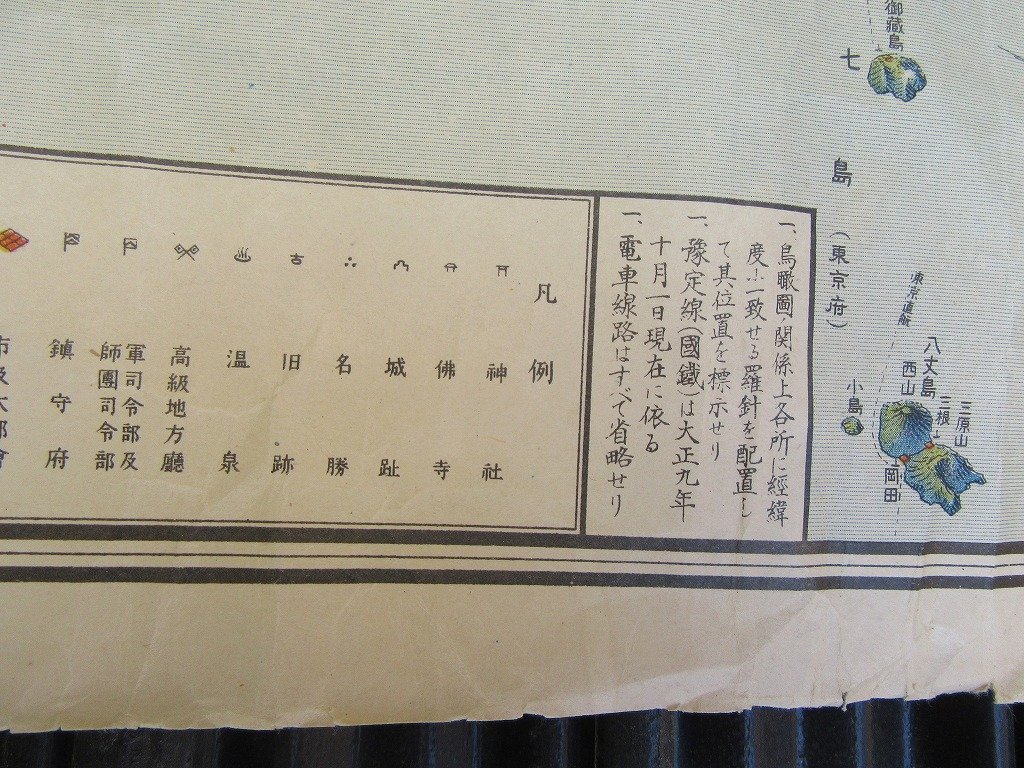 御藏島
七島
(東京府)
東京直航
八丈島
西山
三根
三原山
小島
岡田
一、鳥瞰圖ノ関係上各所に經緯
度に一致せる羅針を配置し
て其位置を標示せり
一、豫定線(國鐵)は大正九年
十月一日現在に依る
一、電車線路はすべて省略せり
凡例
神社
佛寺
城趾
名勝
旧跡
古
温泉
高級地方廳
軍司令部及
師團司令部
鎮守府